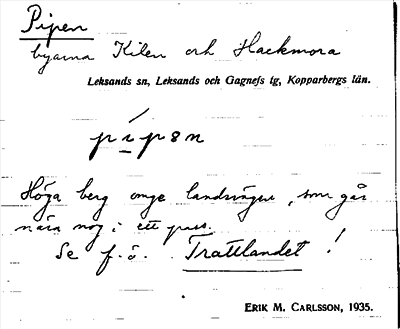 Pipen
byarna Kilen och Hackmora
Leksands sn, Leksands och Gagnefs tg, Kopparbergs län.
pípən
Höga berg omge landsvägen, som går
nära nog i ett pass.
Se f.ö. Trattlandet!
ERIK M. CARLSSON, 1935.